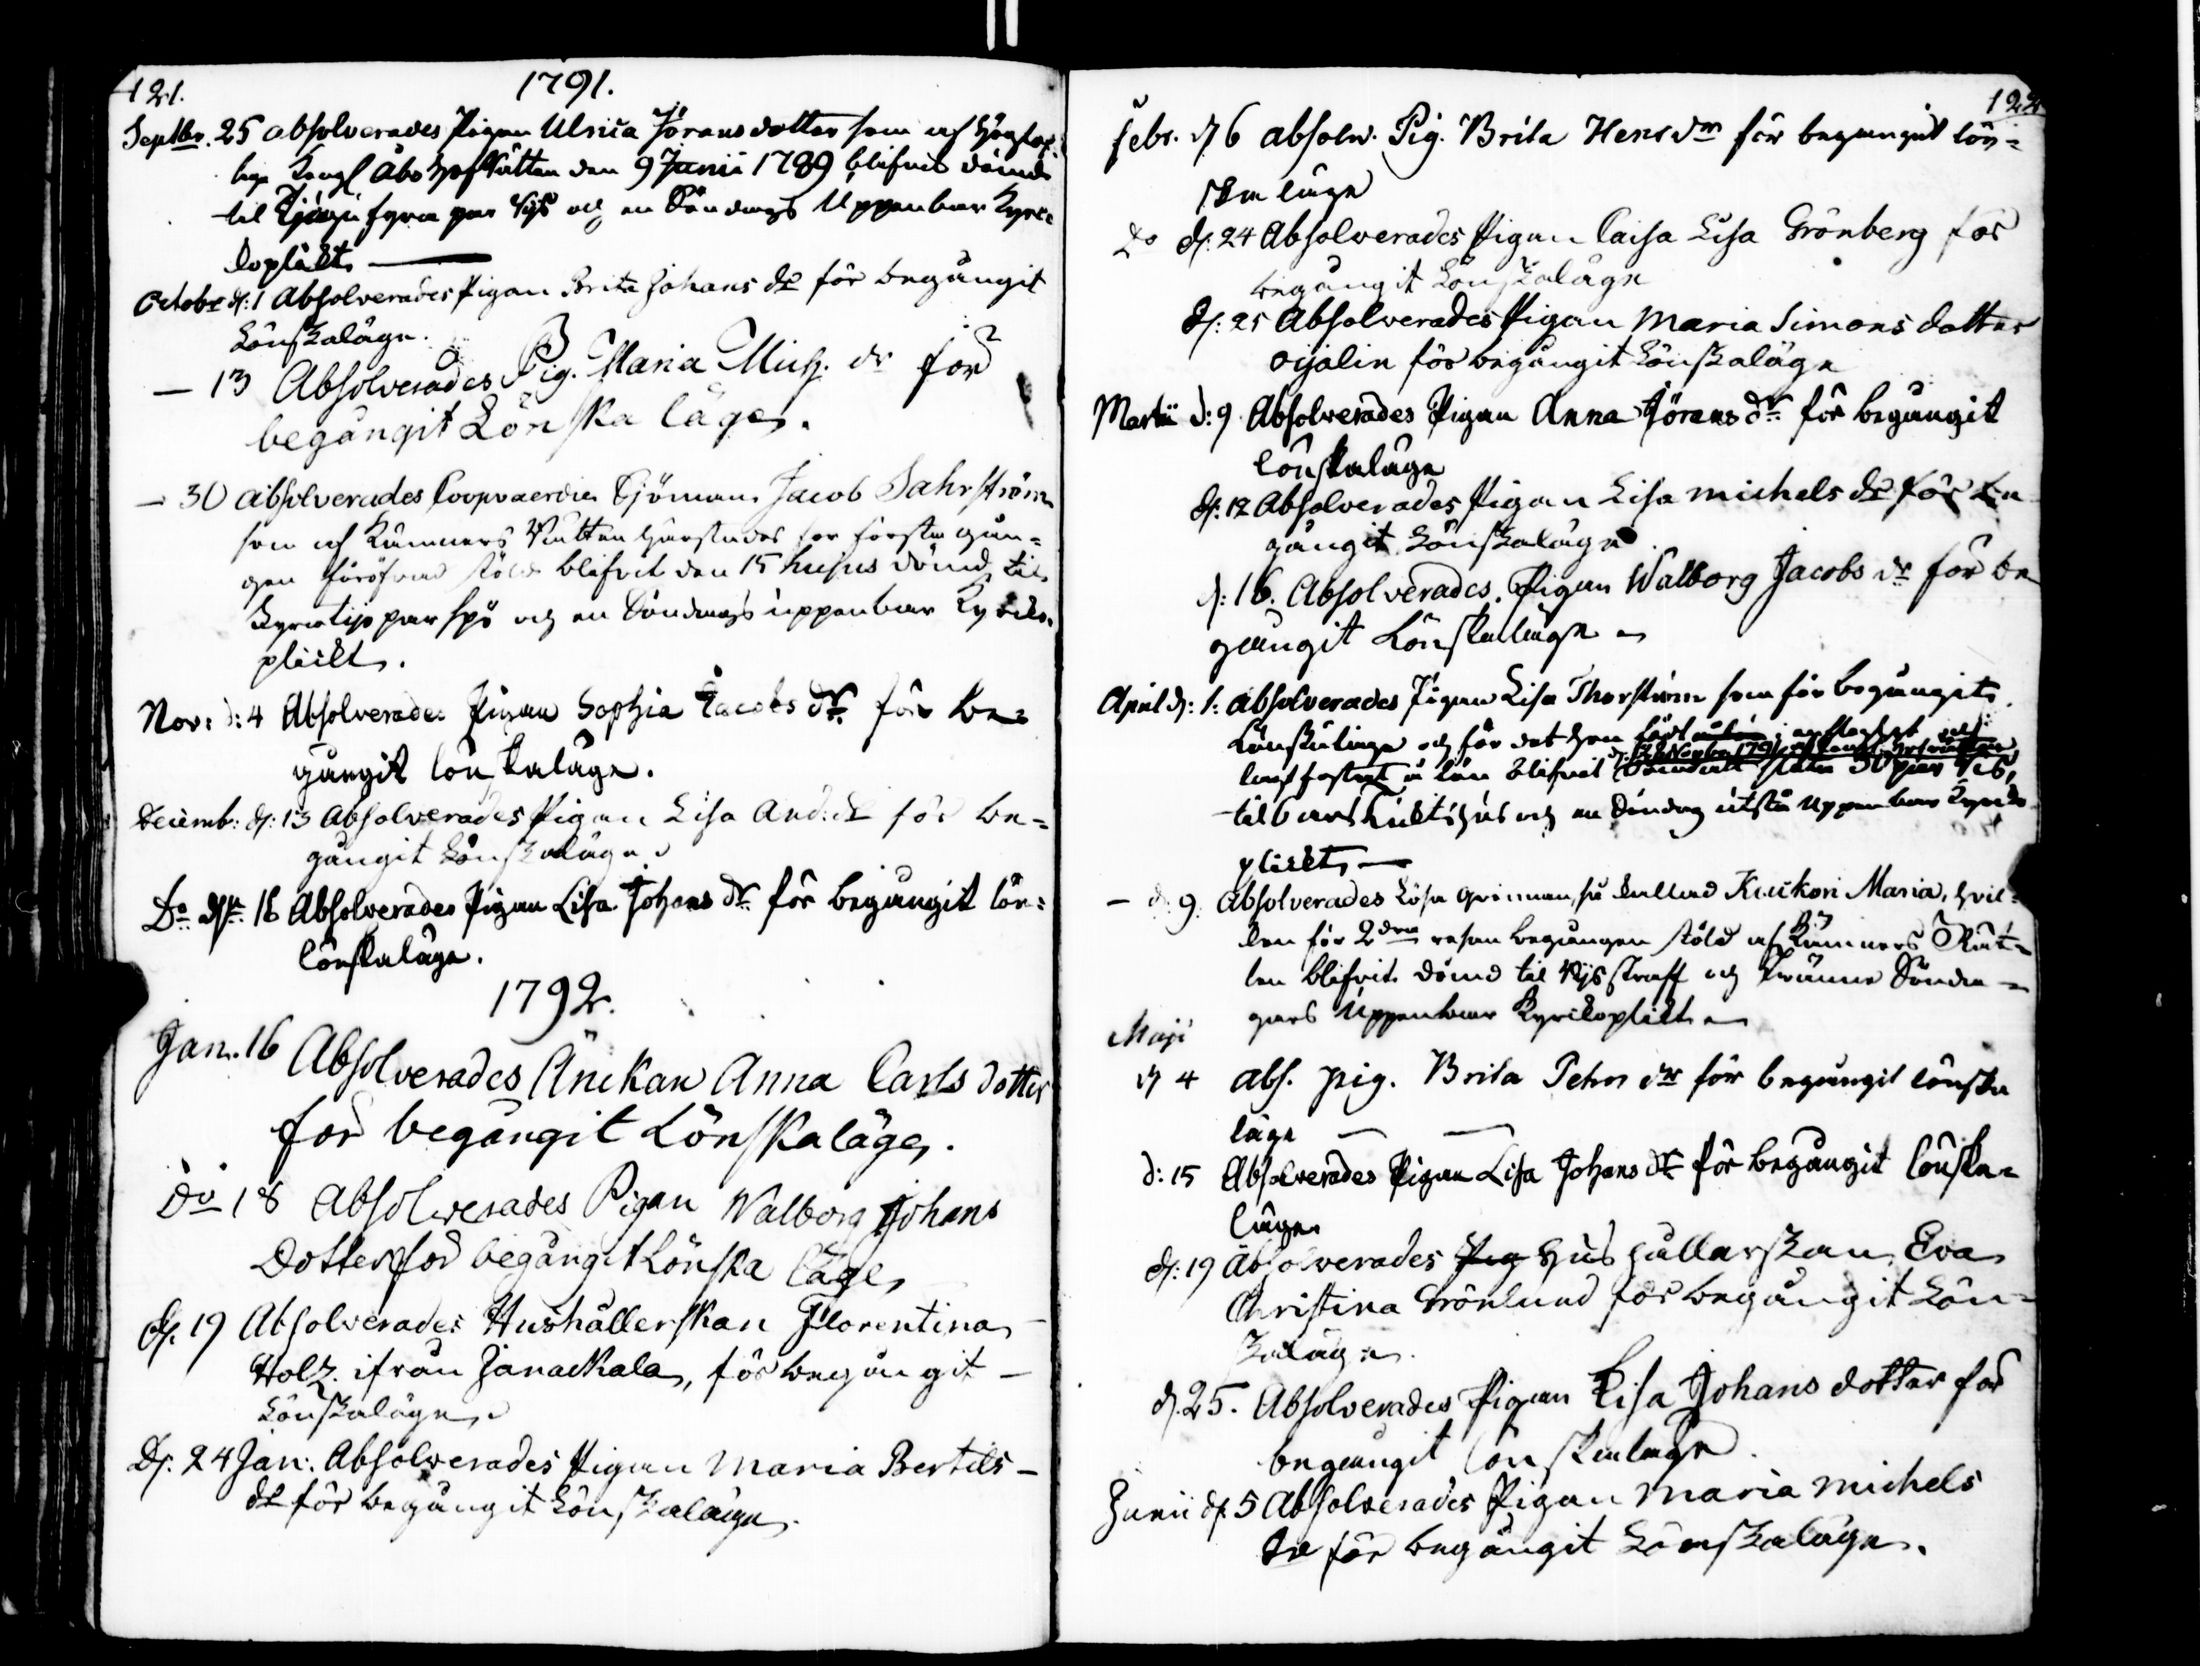 121.
1791.
Septbr. 25 absolverades Pigan Ulrica Jöransdotter som af Höglof-
lige Kongl Åbo Hof Rätten den 9 Junii 1789 blifvit dömd
til Tjugu fyra par Ris och en Söndags Uppenbar Kyrc-
koplickt
Octobr d: 1 Absolverades Pigan Brita Johans dr för begångit
Lönskaläge.
— 13 Absolverades Pig. Maria Mich. dr for
begångit Lönska läge.
— 30 absolverades Coopvaerdie Sjöman Jacob Sahrström
som af Kämners Rätten härstädes for första gån-
gen föröfvad stöld blifvit den 15 hujus dömd til
par spö och en Söndags uppenbar Kyrcko-
plickt.
Nov: d: 4 Absolverades Pigan Sophia Jacobs dr för be-
gångit lönskaläge.
Decemb: d: 13 Absolverades Pigan Lisa And: dr för be-
gångit Lönskaläge
Do d. 18 Absolverades Pigan Lisa Johans dr för begångit lön-
lönskaläge.
1792.
Jan. 16 Absolverades Änckan Anna Carls dotter
for begångit Lönskaläge.
Do 18 Absolverades Pigan Walborg Johans
Dotter for begångit Lönska läge
d. 19 Absolverades Hushållerskan Florentina
Holtz ifrån Janackala, för begångit
Lönskaläge
D. 24 Jan: Absolverades Pigan Maria Bertils-
dr för begångit Lönskaläge.
122
Febr. d 6 absolv. Pig. Brita Hens dr för begångit lön-
ska läge
Do d: 24 Absolverades Pigan Caisa Lisa Grönberg för
begångit Lönskaläge
d: 25 Absolverades Pigan Maria Simons dotter
för begångit Lönskaläge
Martii d: 9 Absolverades Pigan Anna Jörans dr för begångit
lönskaläge
d: 12 Absolverades Pigan Lisa Michels dr för be-
gångit Lönskaläge
d: 16. Absolverades Pigan Walborg Jacobs dr för be
gångit Lönskaläge
April d: 1: Absolverades Pigan Lisa Thorström som för begångit
Lönskaläge och för det hon födt
d. Novbr 1791 af Kongl. Hofrätten
blifvit 30 par Ris,
til års Tuckthus och en Söndag utstå Uppenbar Kyrcko-
plickt
— d: 9. Absolverades Lösa Qvinnan så kallad Kuckori Maria, hvil-
ken för 2dra resan begången stöld af Kämners Rät-
ten blifvit dömd til Risstraff och tvänne Sönda-
gars Uppenbar Kyrckoplickt
Maji
d 4 abs. pig. Brita Pehrs dr för begångit lönska
läge
d: 15 Absolverades Pigan Lisa Johans dr för begångit lönska-
läge
d: 19 Absolverades Pig Hushållerskan Eva
Christina Grönlund för begångit Lön-
skaläge.
d. 25. Absolverades Pigan Lisa Johans dotter för
begångit lönskaläge.
Junii d. 5 Absolverades Pigan Maria Michels
dr för begångit Lönskaläge.